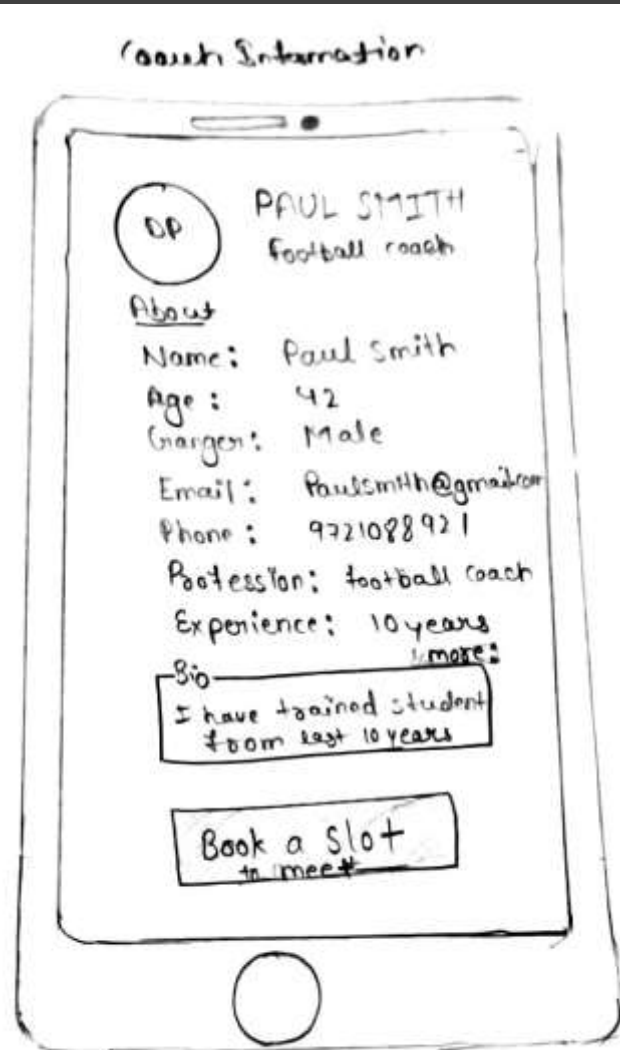 Coach Information
DP
PAUL SMITH
Football coach
About
Name: Paul Smith
Age: 42
Ganger: Male
Email: Paulsmith@gmail.com
Phone: 9721088921
Profession: football coach
Experience: 10 years
more:
Bio
I have trained student
from last 10 years
Book a Slot
to meet